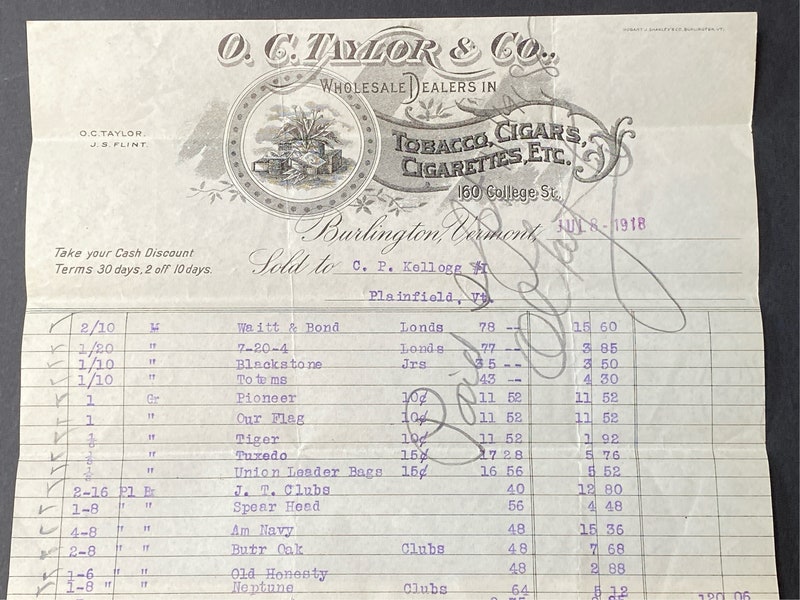 HOBART J. SHANLEY & CO. BURLINGTON, VT.
O. C. TAYLOR & CO.,
WHOLESALE DEALERS IN
TOBACCO, CIGARS,
CIGARETTES, ETC.
O.C. TAYLOR.
J. S. FLINT.
160 College St.,
Burlington, Vermont, JUL 8 - 1918
Take your Cash Discount
Terms 30 days, 2 off 10 days.
Sold to C. P. Kellogg #1
Plainfield, Vt.
2/10 M Waitt & Bond Londs 78 -- 15 60
1/20 " 7-20-4 Londs 77 -- 3 85
1/10 " Blackstone Jrs 35 -- 3 50
1/10 " Totems 43 -- 4 30
1 Gr Pioneer 10¢ 11 52 11 52
1 " Our Flag 10¢ 11 52 11 52
" Tiger 10¢ 11 52 1 92
" Tuxedo 15¢ 17 28 5 76
" Union Leader Bags 15¢ 16 56 5 52
2-16 Pl Bx J. T. Clubs 40 12 80
1-8 " " Spear Head 56 4 48
4-8 " " Am Navy 48 15 36
2-8 " " Butr Oak Clubs 48 7 68
1-6 " " Old Honesty 48 2 88
1-8 " " Neptune Clubs 64 5 12
120 06
Paid